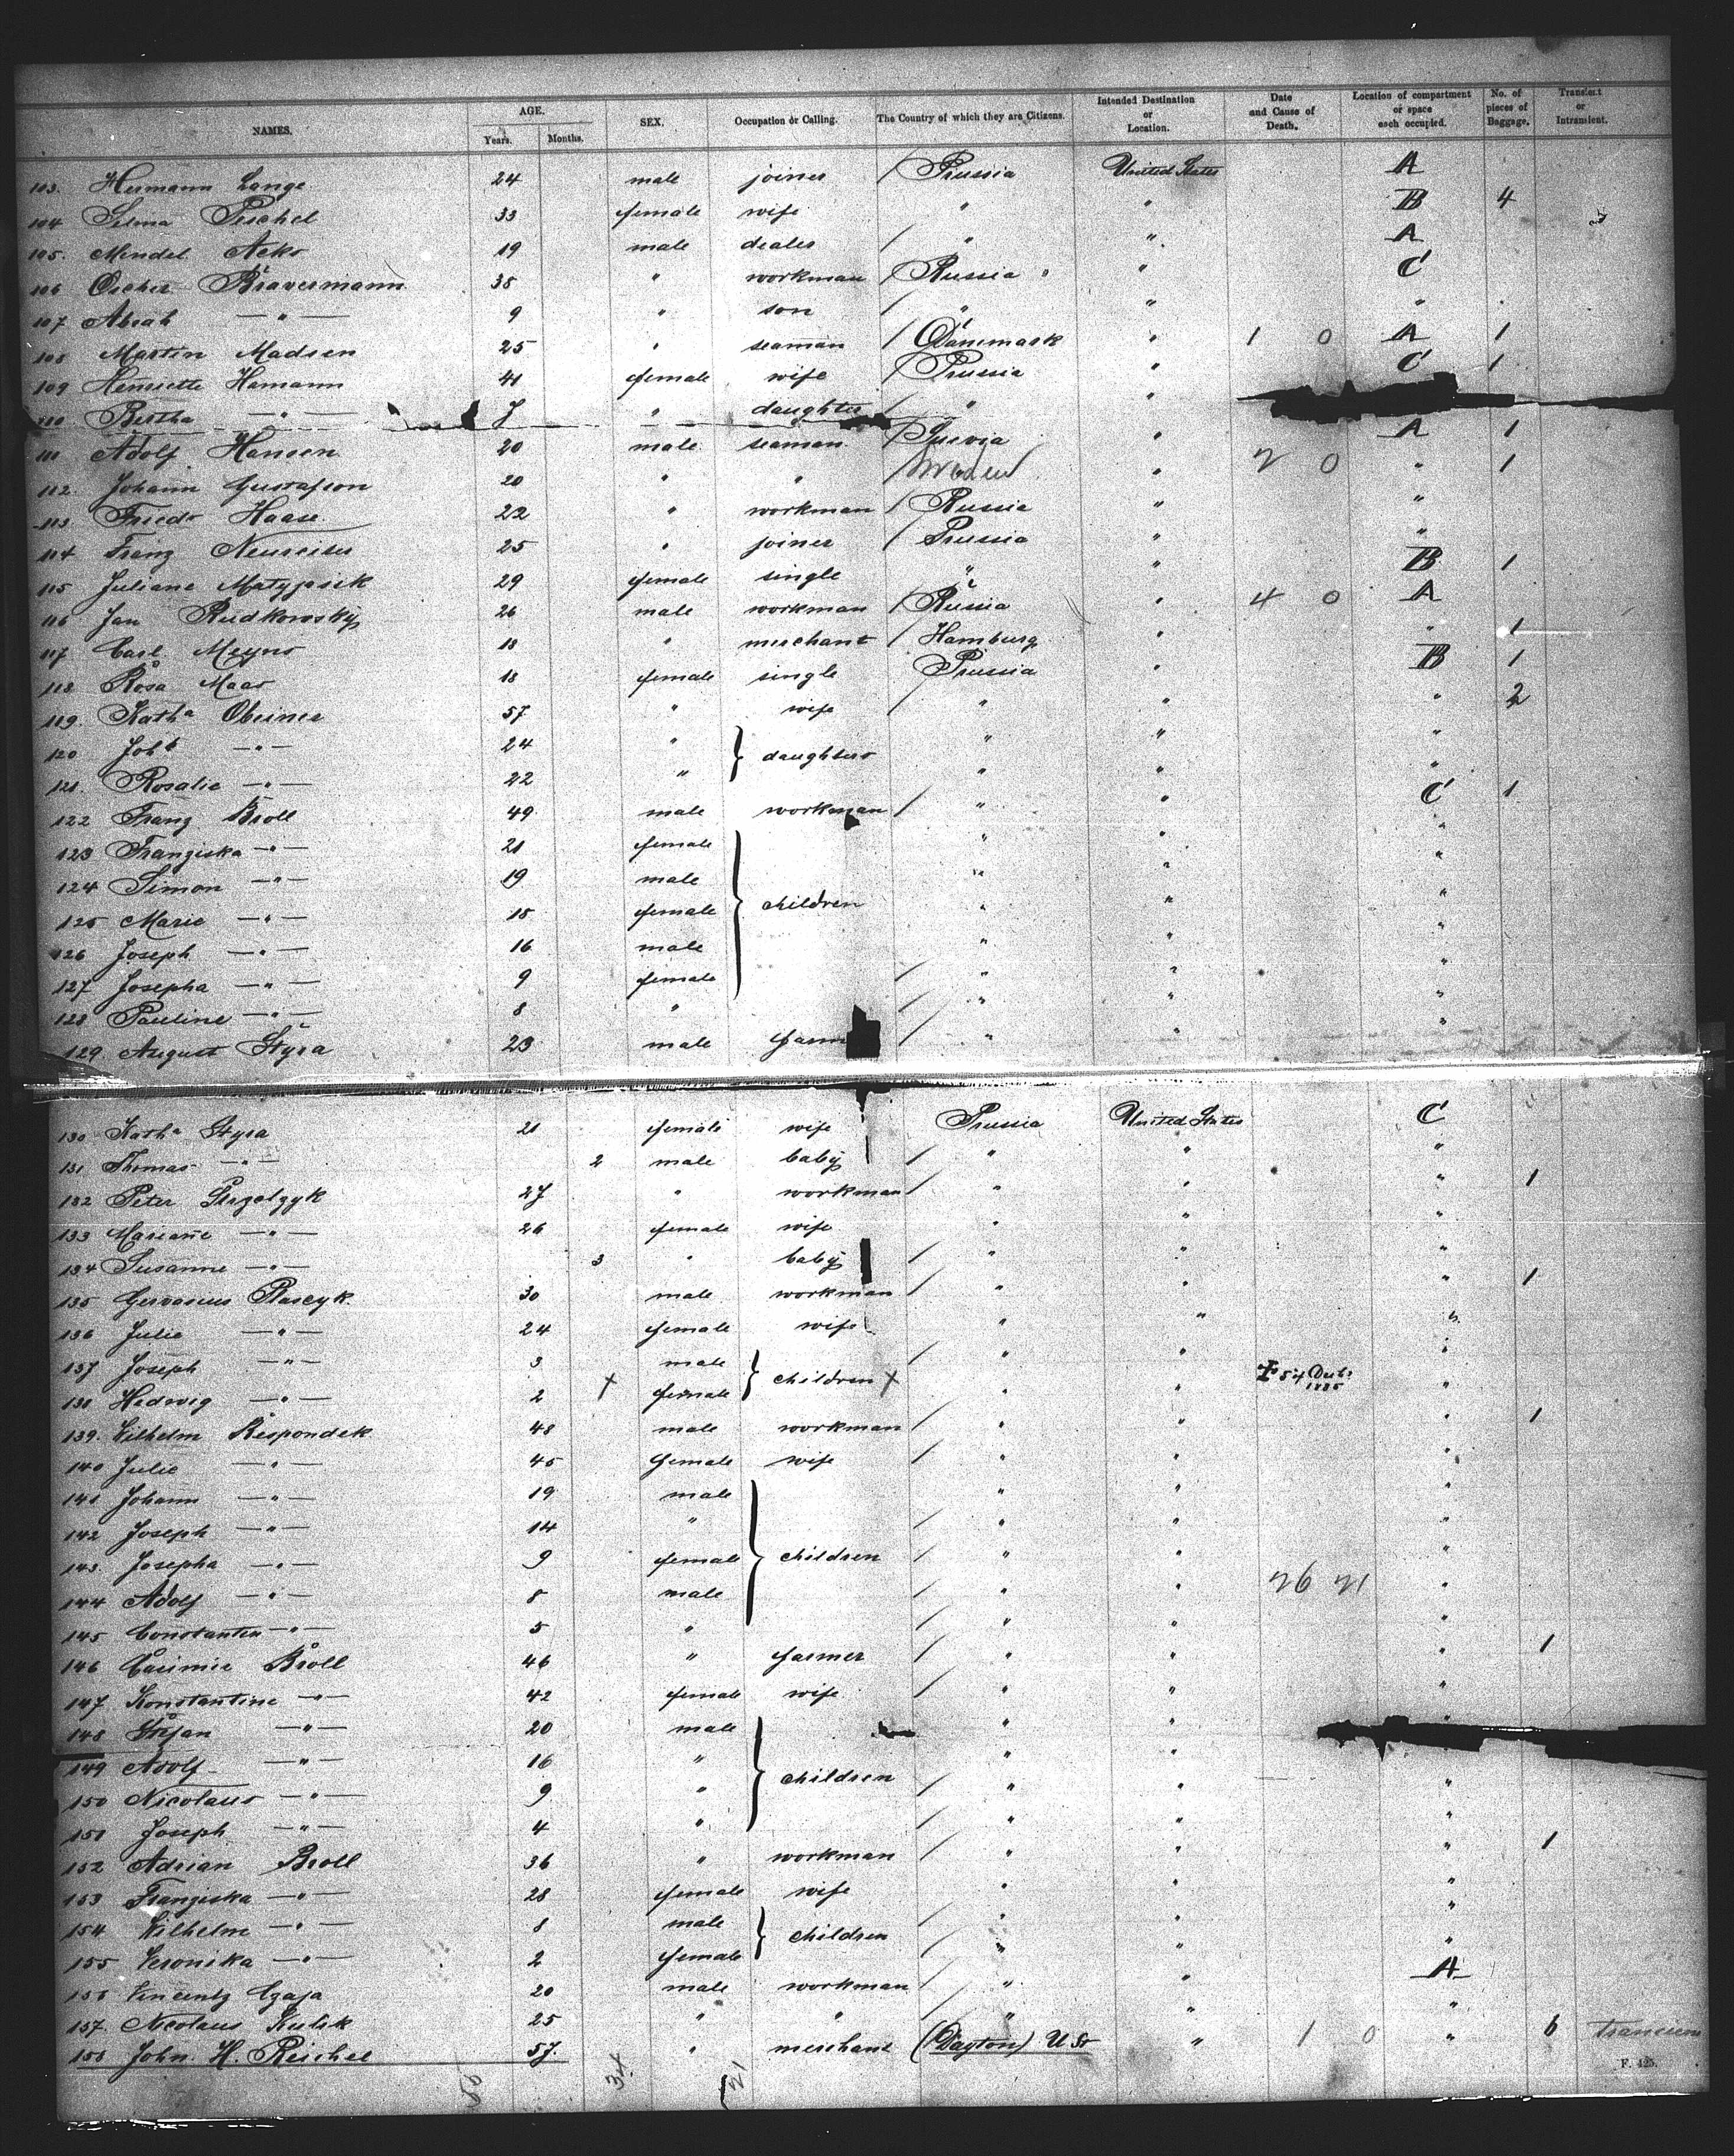 NAMES. AGE. Years. Months. SEX. Occupation or Calling. The Country of which they are Citizens. Intended Destination or Location. Date and Cause of Death. Location of compartment or space each occupied. No. of pieces of Baggage. Transient or Intransient.
103. Hermann Lange 24 male joiner / Prussia United States A
104 Selma Peschel 33 female wife " " B 4
105. Mendel 19 male dealer / " " A
106 Oscher Bravermann 38 " workman / Russia " C
107 Abrah —"— 9 " son / " " "
108 Martin Madsen 25 " seaman / Dänemark " 1 0 A 1
109 Henriette Hamann 41 female wife / Prussia " C 1
110 Bertha —"— 7 " daughter / " "
111 Adolf Hansen 20 male seaman / " A 1
112. Johann Gustafson 20 " " / Sweden " 2 0 " 1
113 Friedr Haase 22 " workman / Russia " "
114 Franz Neureiter 25 " joiner / Prussia " "
115 Juliane Matyjasik 29 female single " " B 1
116 Jan Rudkowsky 26 male workman / Russia " 4 0 A
117 Carl Meyns 18 " merchant / Hamburg " " 1
118 Rosa Maas 18 female single Prussia " B 1
119. Kath^a Obeiner 57 " wife / " " " 2
120 24 " } daughters " " "
121. Rosalie —"— 22 " " " "
122 Franz Broll 49 male workman / " " C 1
123 Franziska —"— 21 female " " "
124 Simon —"— 19 male " " "
125 Marie —"— 18 female } children " " "
126 Joseph —"— 16 male " " "
127 Josepha —"— 9 female / " " "
128 Pauline —"— 8 " / " " "
129. August Styra 23 male farm / " " "
130 Kath^a Styra 21 female wife Prussia United States C
131 Thomas —"— 2 male baby / " " "
132 Peter Strzelzyk 27 " workman / " " " 1
133 Mariane —"— 26 female wife " " "
134 Susanne —"— 3 " baby / " " "
135 Gervasius Plascyk. 30 male workman / " " " 1
136 Julie —"— 24 female wife " " "
137 Joseph —"— 3 male } children / " " "
138 Hedwig —"— 2 + female + " " 1885 "
139. Wilhelm Respondek 48 male workman / " " " 1
140 Julie —"— 45 female wife / " " "
141 Johann —"— 19 male " " "
142 Joseph —"— 14 " / " " "
143. Josepha —"— 9 female } children / " " "
144 Adolf —"— 8 male / " " 26 21 "
145 Constantin —"— 5 " / " " "
146 Casimir Broll 46 " farmer / " " " 1
147 Konstantine —"— 42 female wife / " " "
148 Stefan —"— 20 male " " "
149 Adolf —"— 16 " } children " "
150 Nicolaus —"— 9 " / " " "
151 Joseph —"— 4 " / " " "
152 Adrian Broll 36 " workman / " " " 1
153 Franziska —"— 28 female wife " " "
154 Wilhelm —"— 8 male } children / " " "
155 Veronika —"— 2 female / " " "
156 Vincenty Czaja 20 male workman / " " A
157. Nicolaus Kulik 25 " " / " " "
158 John. H. Reichel 57. " merchant (Dayton) U St " 1 0 " 6
34 21
F. 425.